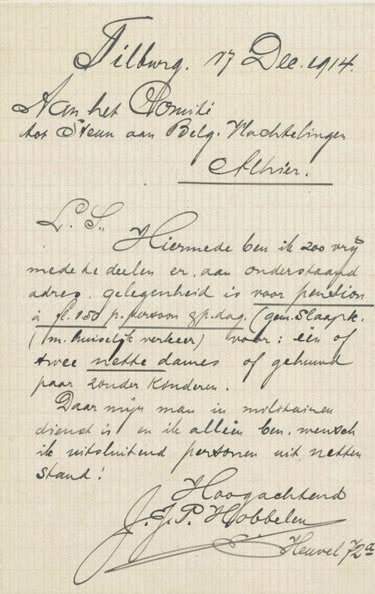 Tilburg. 17 Dec. 1914.
Aan het Comité
tot Steun aan Belg. Vluchtelingen
Alhier.
L. S.,
Hiermede ben ik zoo vrij
mede te deelen er, aan onderstaand
adres, gelegenheid is voor pension
à fl. 1.50 p. persoon p. dag. (gem. slaapk.
(m. huiselijk verkeer) voor: één of
twee nette dames of gehuwd
paar zonder kinderen.
Daar mijn man in militairen
dienst is en ik alleen ben, wensch
ik uitsluitend personen uit netten
stand!
Hoogachtend
J. J. P. Hobbelen
Heuvel 72a